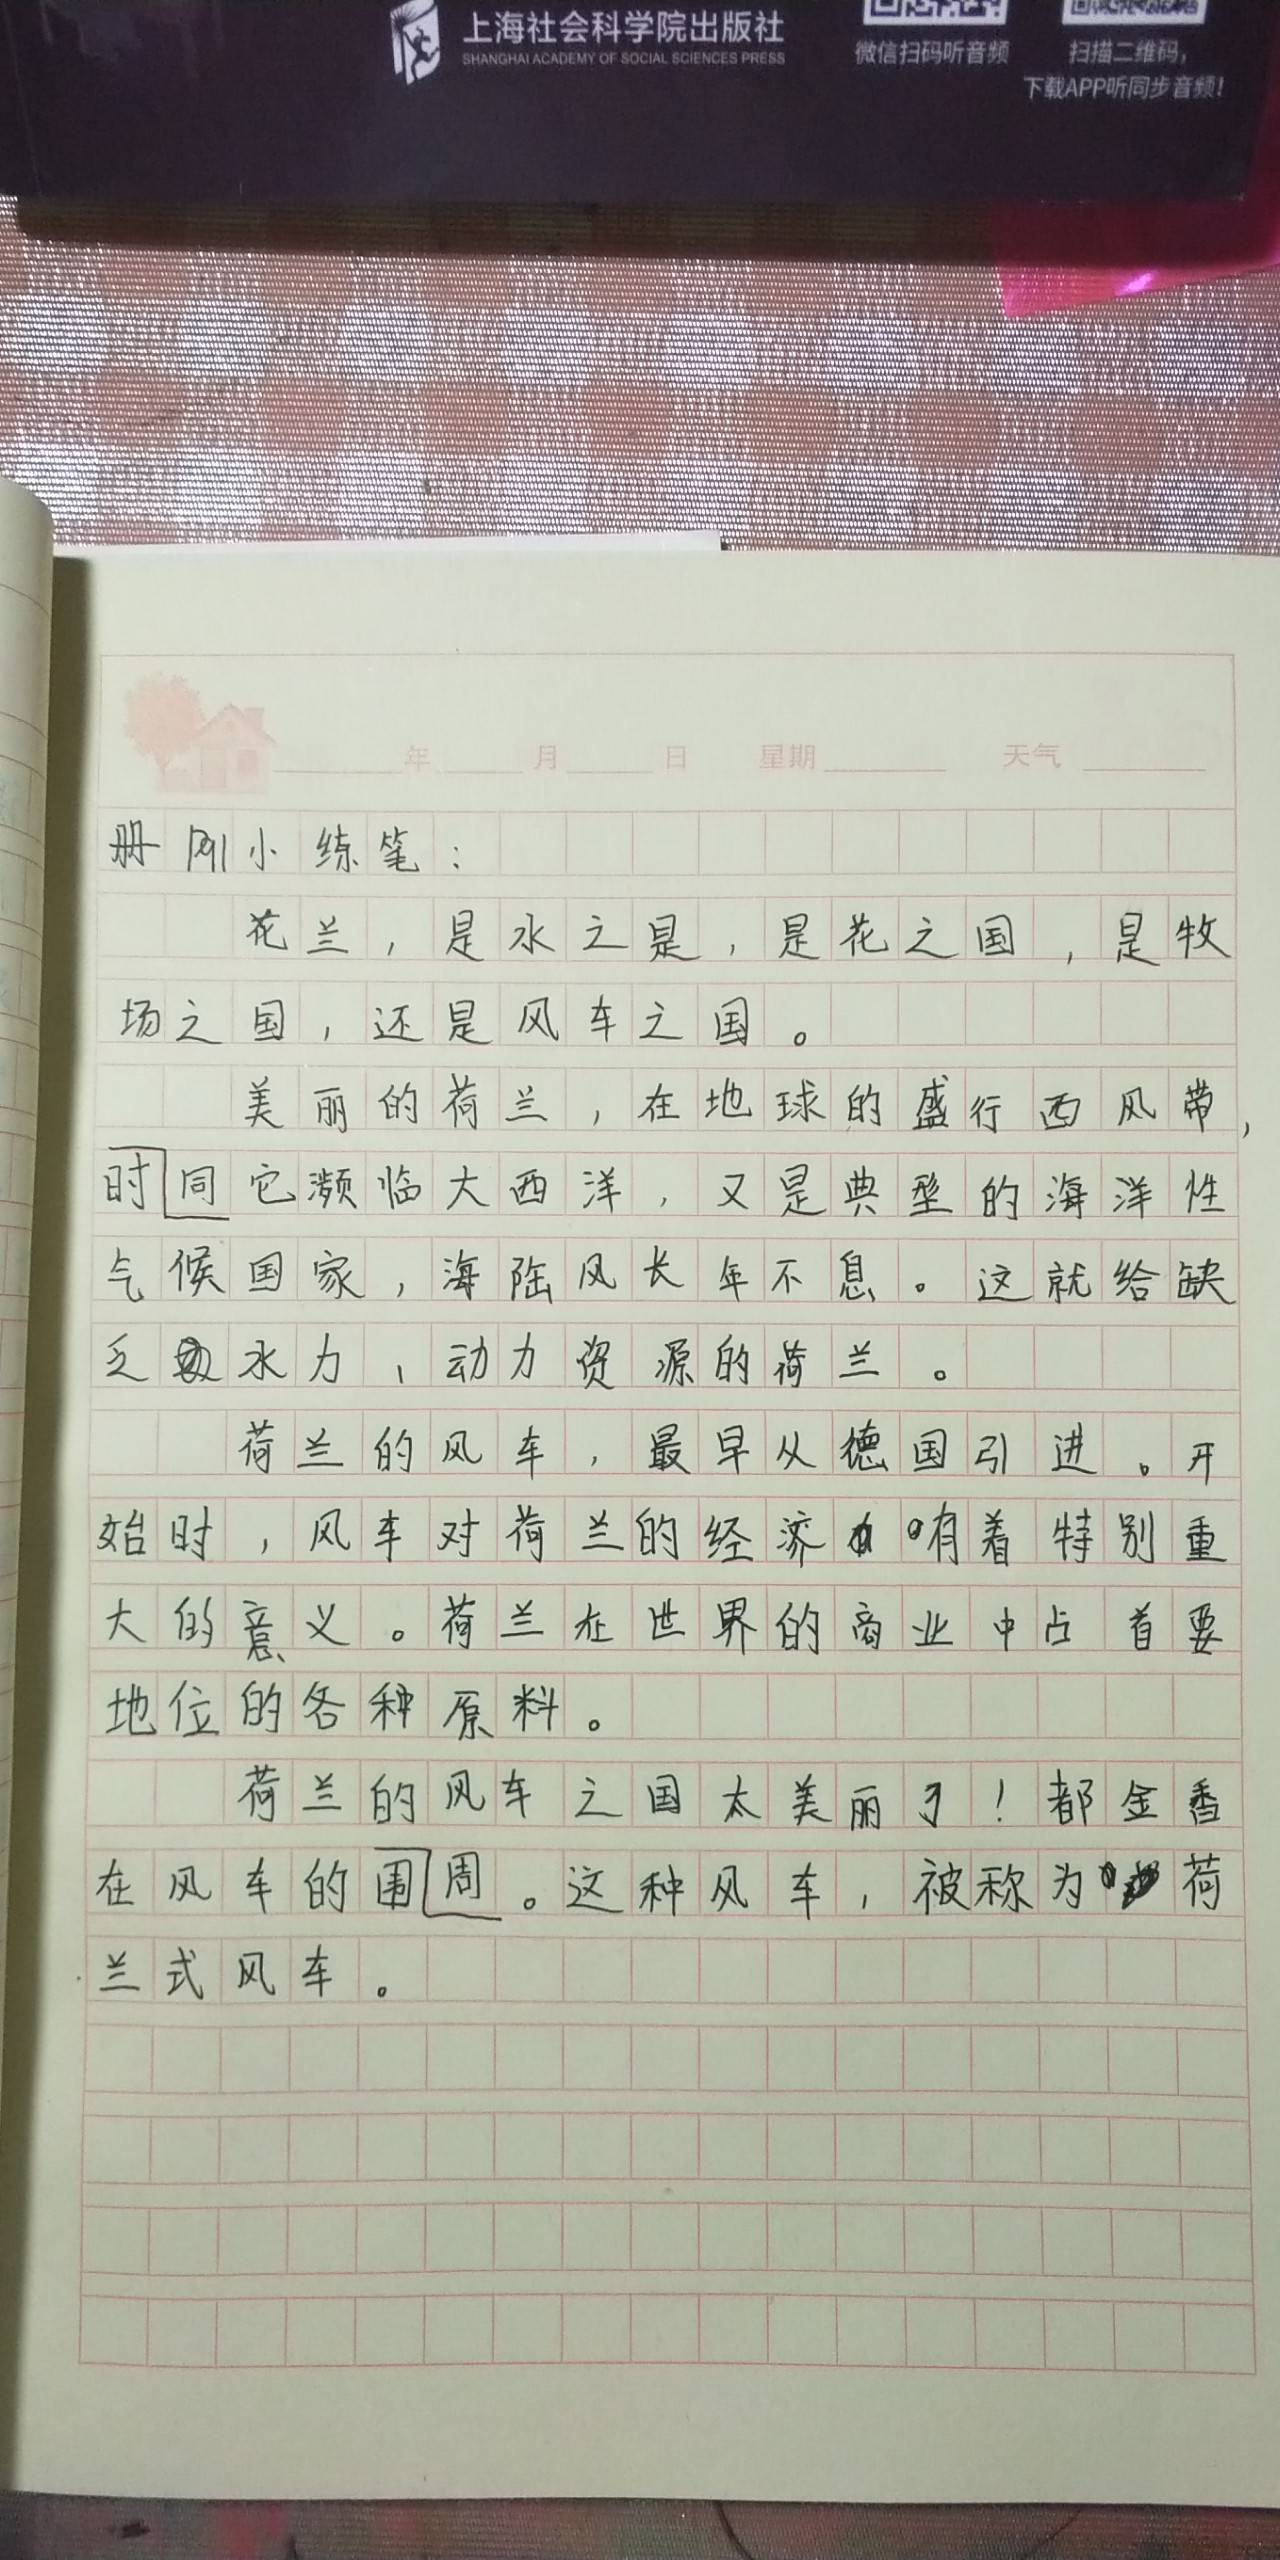 上海社会科学院出版社
SHANGHAI ACADEMY OF SOCIAL SCIENCES PRESS
微信扫码听音频
扫描二维码，
下载APP听同步音频！
年 月 日 星期 天气
册 小练笔：
花兰，是水之是，是花之国，是牧
场之国，还是风车之国。
美丽的荷兰，在地球的盛行西风带，
时同它濒临大西洋，又是典型的海洋性
气候国家，海陆风长年不息。这就给缺
乏水力、动力资源的荷兰。
荷兰的风车，最早从德国引进。开
始时，风车对荷兰的经济有着特别重
大的意义。荷兰在世界的商业中占首要
地位的各种原料。
荷兰的风车之国太美丽了！都金香
在风车的围周。这种风车，被称为荷
兰式风车。